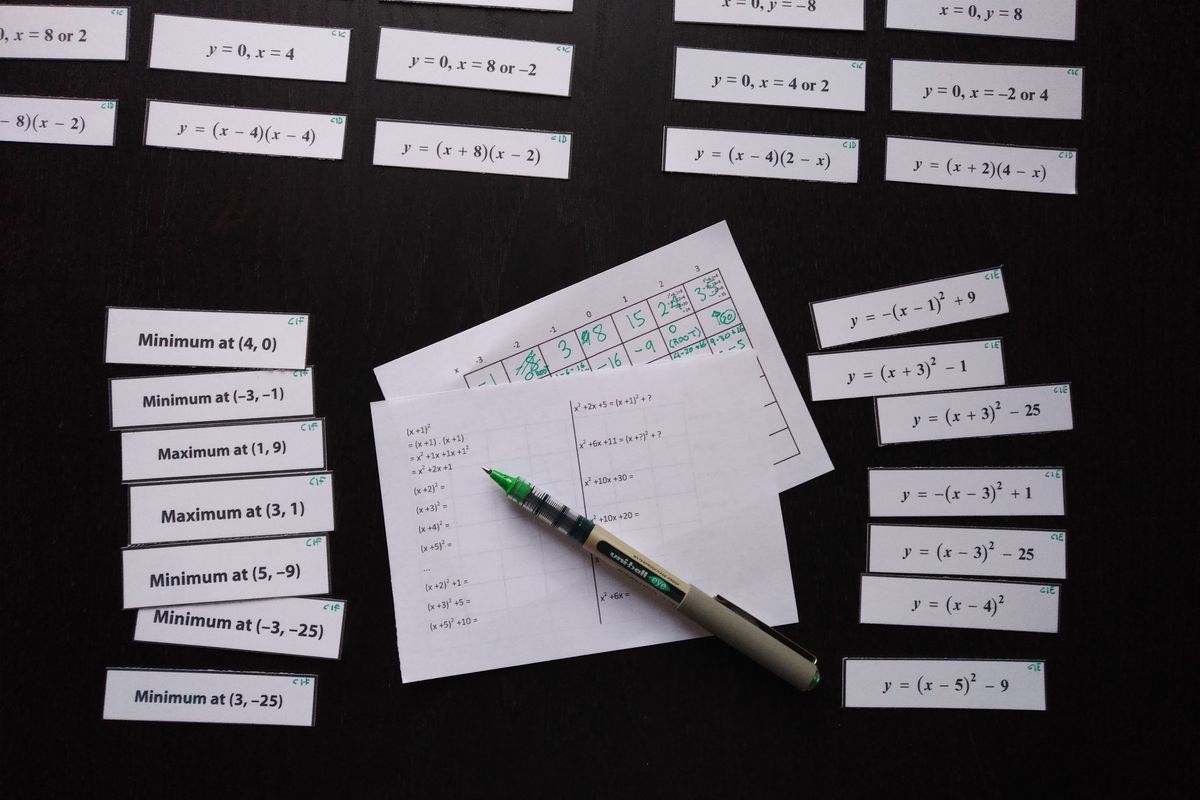 x = 0, y = −8
x = 0, y = 8
, x = 8 or 2
C1C
y = 0, x = 4
C1C
y = 0, x = 8 or −2
C1C
y = 0, x = 4 or 2
C1C
y = 0, x = −2 or 4
C1C
− 8)(x − 2)
C1D
y = (x − 4)(x − 4)
C1D
y = (x + 8)(x − 2)
C1D
y = (x − 4)(2 − x)
C1D
y = (x + 2)(4 − x)
C1D
Minimum at (4, 0)
C1F
Minimum at (−3, −1)
C1F
Maximum at (1, 9)
C1F
Maximum at (3, 1)
C1F
Minimum at (5, −9)
C1F
Minimum at (−3, −25)
C1F
Minimum at (3, −25)
C1F
x -3 -2 -1 0 1 2 3
3 8 15
-16 -9 0
(ROOT)
4-20+16 9-30+16
-5
(x +1)²
= (x+1) . (x+1)
= x² +1x +1x +1²
= x² +2x +1
(x +2)² =
(x +3)² =
(x +4)² =
(x +5)² =
...
(x +2)² +1 =
(x +3)² +5 =
(x +5)² +10 =
x² +2x +5 = (x +1)² + ?
x² +6x +11 = (x +?)² + ?
x² +10x +30 =
x² +10x +20 =
x² +6x =
uni-ball eye
y = −(x − 1)² + 9
C1E
y = (x + 3)² − 1
C1E
y = (x + 3)² − 25
C1E
y = −(x − 3)² + 1
C1E
y = (x − 3)² − 25
C1E
y = (x − 4)²
C1E
y = (x − 5)² − 9
C1E